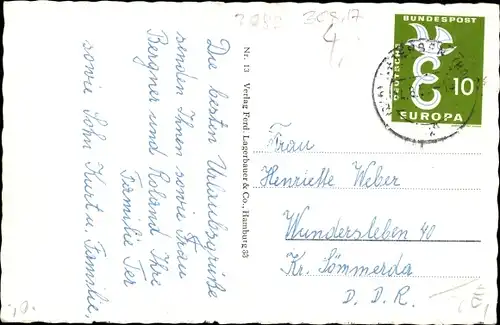 2082 368,17
4,-
DEUTSCHE
BUNDESPOST
10
EUROPA
Die besten Urlaubsgrüße
senden Ihnen sowie Frau
Bergner und Roland Ihre
Familie Ter
sowie Sohn Kurt u. Familie.
Nr. 13 Verlag Ferd. Lagerbauer & Co., Hamburg 35
Frau
Henriette Weber
Wundersleben 40
Kr. Sömmerda
D. D. R.